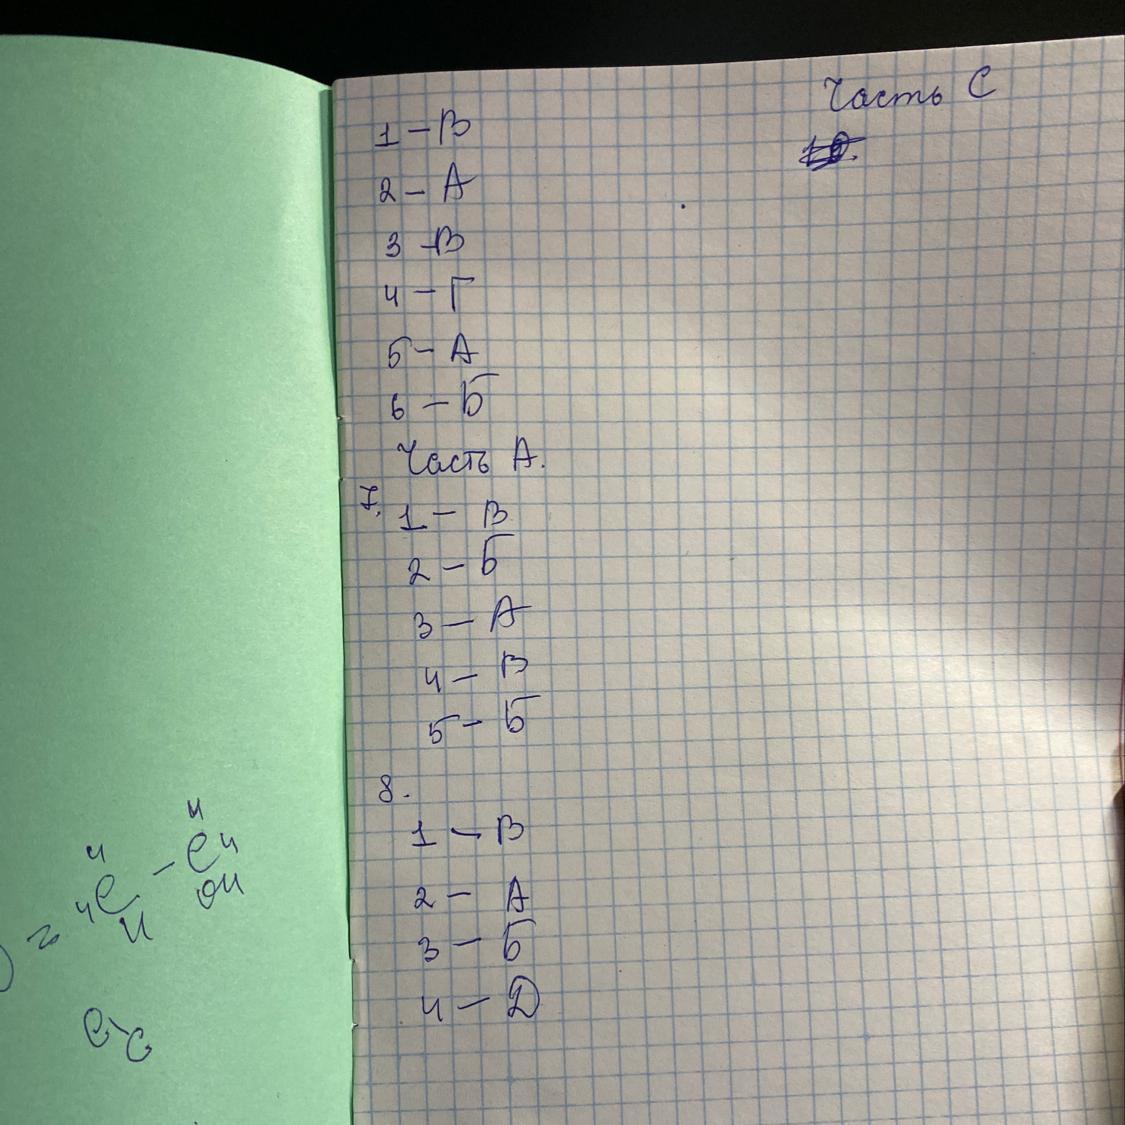 1 - В
2 - А
3 - В
4 - Г
5 - А
6 - Б
Часть А.
7.
1 - В
2 - Б
3 - А
4 - В
5 - Б
8.
1 - В
2 - А
3 - Б
4 - Д
Часть С
H
H
C - C H
H
H
OH
C - C